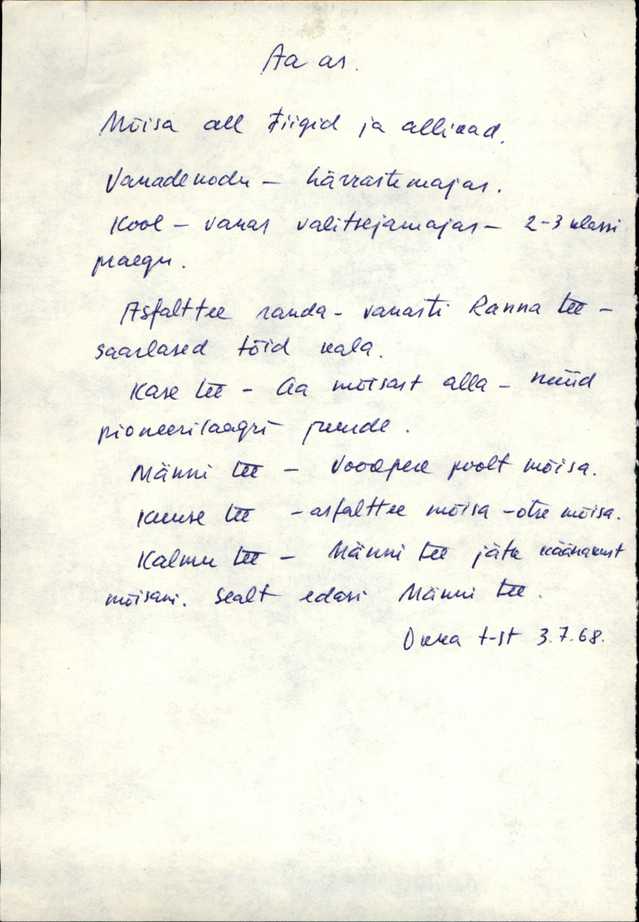 Aa as.
Mõisa all tiigid ja allikad.
Vanadekodu – härrastemajas.
Kool – vanas valitsejamajas – 2-3 klassi
praegu.
Asfalttee randa – vanasti Ranna tee –
saarlased tõid kala.
Kase tee – Aa mõisast alla – nüüd
pioneerilaagri juurde.
Männi tee – Voodpere poolt mõisa.
Kuuse tee – asfalttee mõisa – otse mõisa.
Kalmu tee – Männi tee jätk käänakust
mõisani. Sealt edasi Männi tee.
t-st 3.7.68.